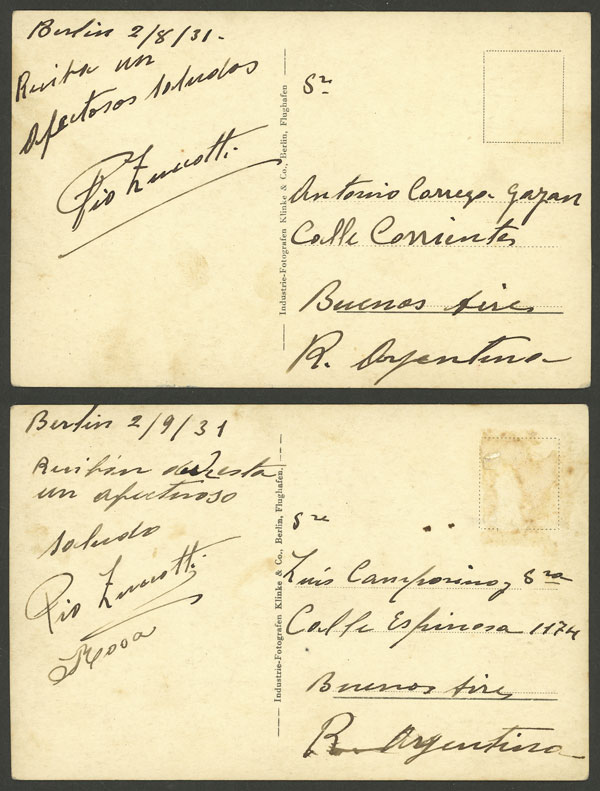 Berlin 2/8/31.
Reciba un
afectosos saludos
Pio Zuccotti
Industrie-Fotografen Klinke & Co., Berlin, Flughafen
Sre
Antonio Correga Gazan
Calle Corrientes
Buenos Aires
R. Argentina
Berlin 2/9/31
Reciban de esta
un afectuoso
saludo
Pio Zuccotti
Industrie-Fotografen Klinke & Co., Berlin, Flughafen.
Sre
Luis Camporino y Sra
Calle Espinosa 1174
Buenos Aires
R. Argentina